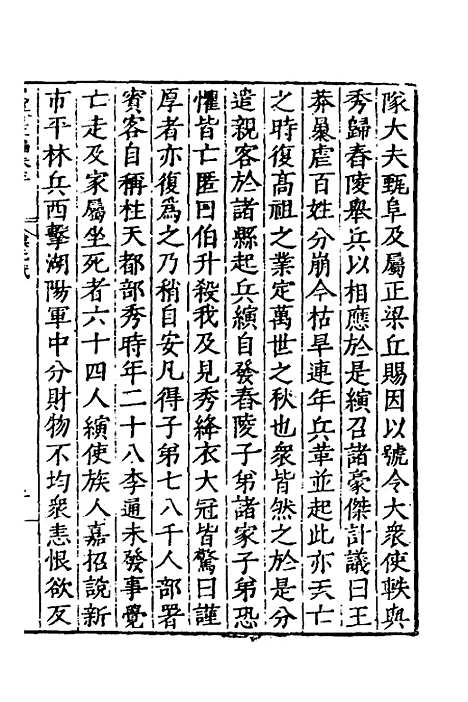 隊大夫甄阜及屬正梁丘賜因以號令大衆使軼與
秀歸舂陵舉兵以相應於是縯召諸豪傑計議曰王
莽暴虐百姓分崩今枯旱連年兵革並起此亦天亡
之時復高祖之業定萬世之秋也衆皆然之於是分
遣親客於諸縣起兵縯自發舂陵子弟諸家子弟恐
懼皆亡匿曰伯升殺我及見秀絳衣大冠皆驚曰謹
厚者亦復爲之乃稍自安凡得子弟七八千人部署
賓客自稱柱天都部秀時年二十八李通未發事覺
亡走及家屬坐死者六十四人縯使族人嘉招說新
市平林兵西擊湖陽軍中分財物不均衆恚恨欲反